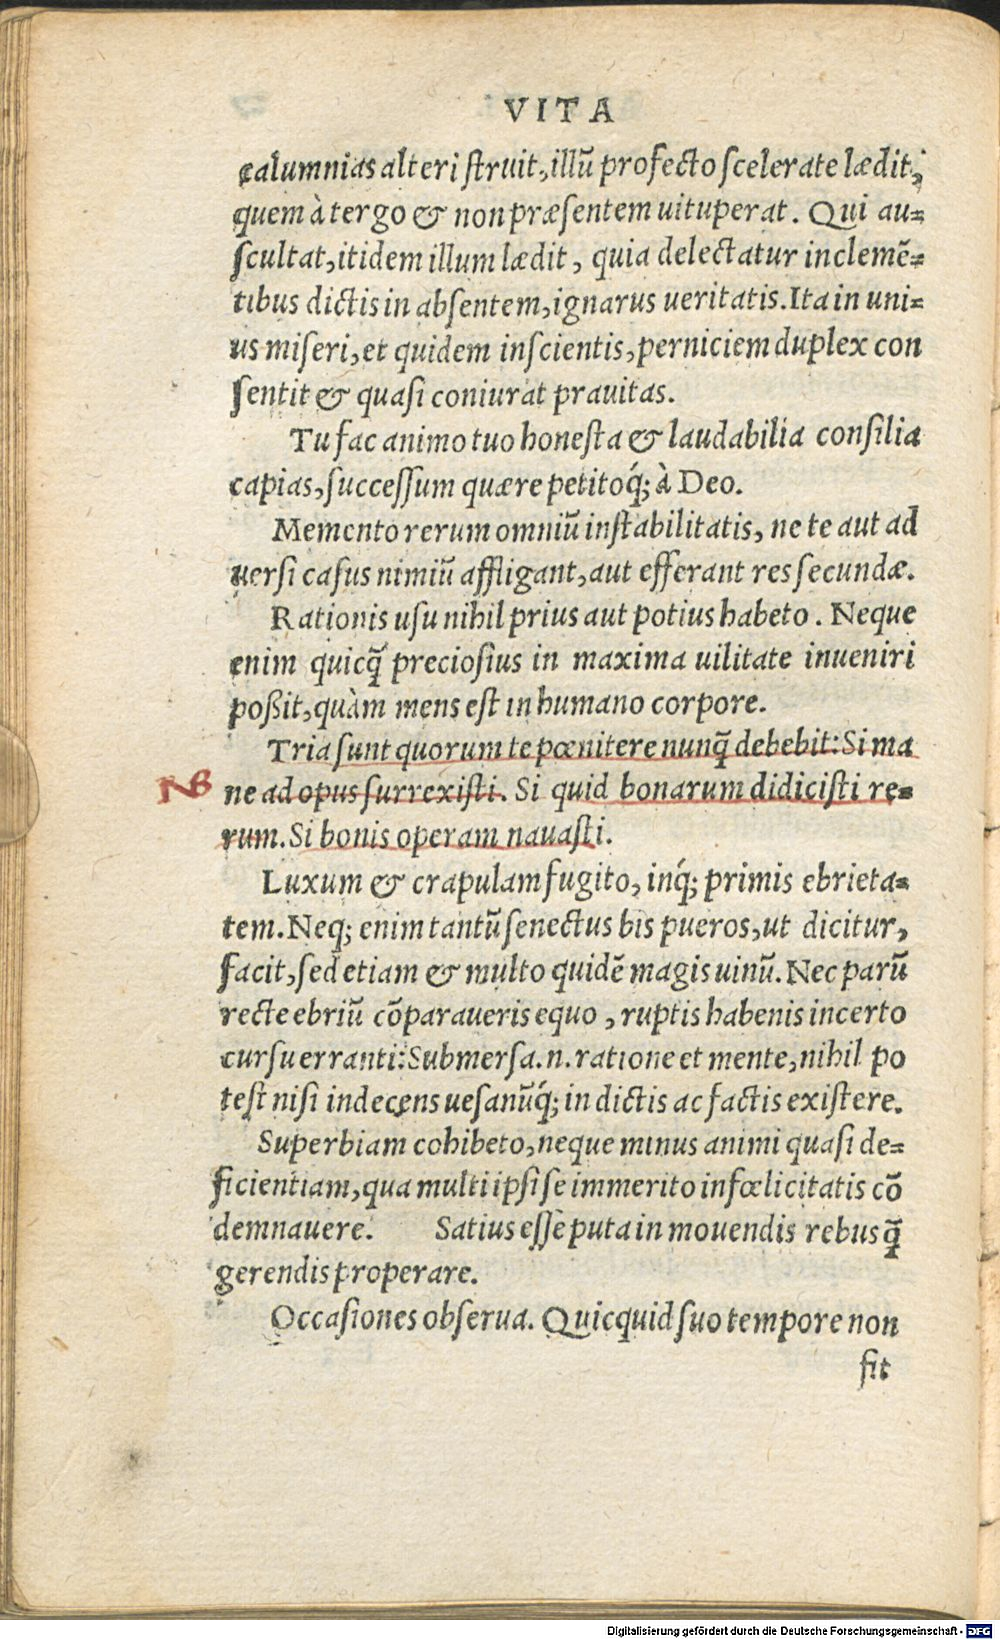 VITA
calumnias alteri ſtruit, illũ profecto ſcelerate lædit,
quem à tergo & non præſentem uituperat. Qui au=
ſcultat, itidem illum lædit, quia delectatur inclemē=
tibus dictis in abſentem, ignarus ueritatis. Ita in uni=
us miſeri, et quidem inſcientis, perniciem duplex con
ſentit & quaſi coniurat prauitas.
Tu fac animo tuo honeſta & laudabilia conſilia
capias, ſucceſſum quære petitoq́; à Deo.
Memento rerum omniũ inſtabilitatis, ne te aut ad
uerſi caſus nimiũ affligant, aut efferant res ſecundæ.
Rationis uſu nihil prius aut potius habeto. Neque
enim quicq̃ precioſius in maxima uilitate inueniri
poßit, quàm mens eſt in humano corpore.
Tria ſunt quorum te pœnitere nunq̃ debebit: Si ma
NB
ne ad opus ſurrexiſti. Si quid bonarum didiciſti re=
rum. Si bonis operam nauaſti.
Luxum & crapulam fugito, inq́; primis ebrieta=
tem. Neq; enim tantũ ſenectus bis pueros, ut dicitur,
facit, ſed etiam & multo quidē magis uinũ. Nec parũ
recte ebriũ cõparaueris equo, ruptis habenis incerto
curſu erranti: Submerſa .n. ratione et mente, nihil po
teſt niſi indecens ueſanũq́; in dictis ac factis exiſtere.
Superbiam cohibeto, neque minus animi quaſi de=
ficientiam, qua multi ipſi ſe immerito infœlicitatis cõ
demnauere. Satius eſſe puta in mouendis rebus q̃
gerendis properare.
Occaſiones obſerua. Quicquid ſuo tempore non
fit
Digitalisierung gefördert durch die Deutsche Forschungsgemeinschaft - DFG